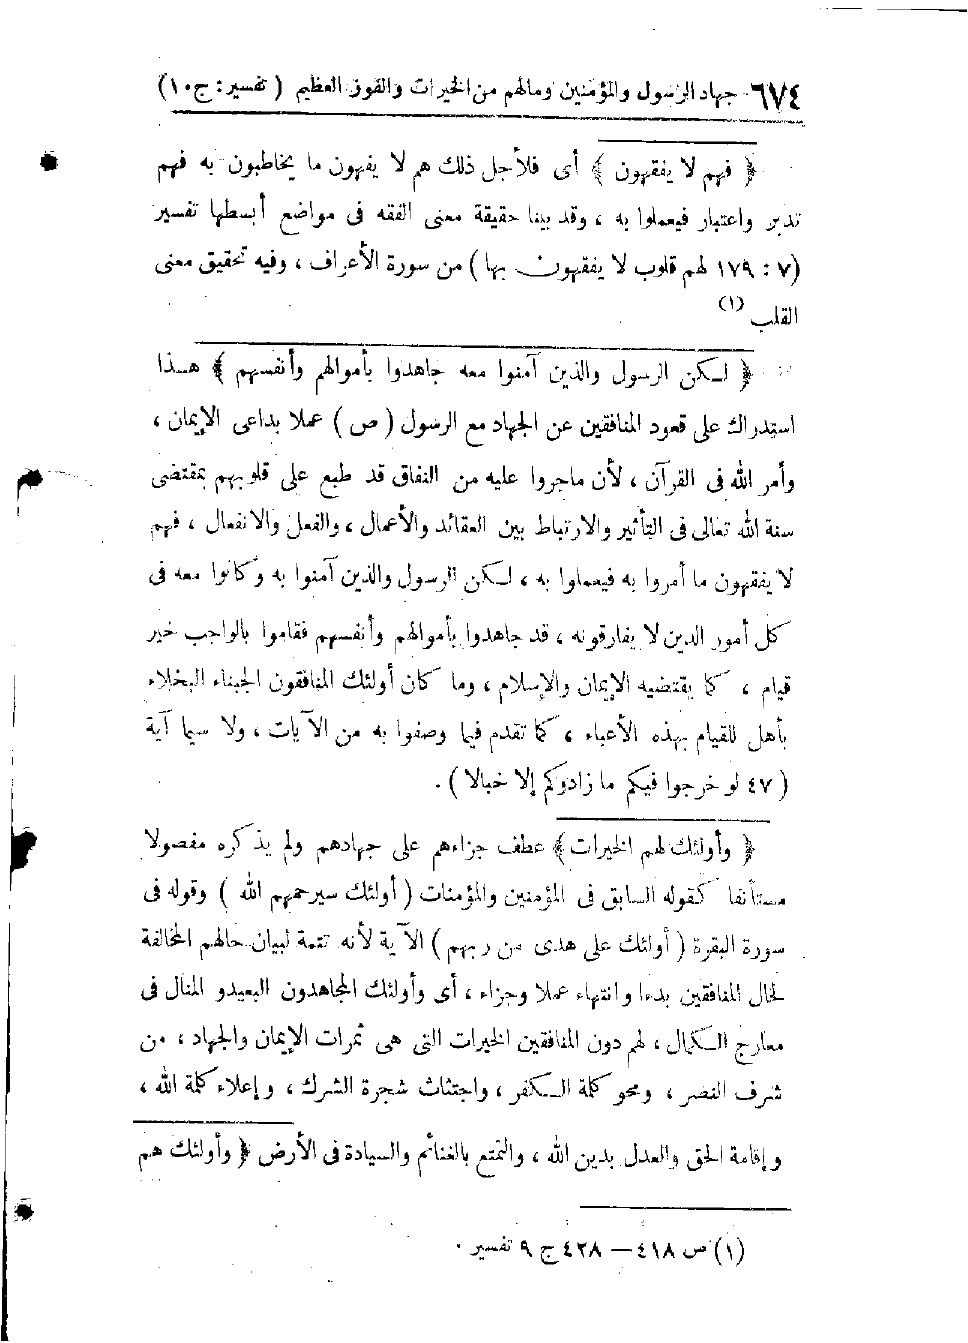 ٦٧٤ جهاد الرسول والمؤمنين ومالهم من الخيرات والفوز العظيم ( تفسير : ج ١٠ )
﴿ فهم لا يفقهون ﴾ أى فلأجل ذلك هم لا يفهون ما يخاطبون به فهم
تدبر واعتبار فيعملوا به ، وقد بينا حقيقة معنى الفقه فى مواضع أبسطها تفسير
( ٧ : ١٧٩ لهم قلوب لا يفقهون بها ) من سورة الأعراف ، وفيه تحقيق معنى
القلب (١)
﴿ لـكن الرسول والذين آمنوا معه جاهدوا بأموالهم وأنفسهم ﴾ هـذا
استدراك على قعود المنافقين عن الجهاد مع الرسول ( ص ) عملا بداعى الإيمان ،
وأمر الله فى القرآن ، لأن ماجروا عليه من النفاق قد طبع على قلوبهم بمقتضى
سنة الله تعالى فى التأثير والارتباط بين العقائد والأعمال ، والفعل والانفعال ، فهم
لا يفقهون ما أمروا به فيعملوا به ، لـكن الرسول والذين آمنوا به وكانوا معه فى
كل أمور الدين لا يفارقونه ، قد جاهدوا بأموالهم وأنفسهم فقاموا بالواجب خير
قيام ، كما يقتضيه الإيمان والإسلام ، وما كان أولئك المنافقون الجبناء البخلاء
بأهل للقيام بهذه الأعباء ، كما تقدم فيما وصفوا به من الآيات ، ولا سيما آية
( ٤٧ لو خرجوا فيكم ما زادوكم إلا خبالا ) .
﴿ وأولئك لهم الخيرات ﴾ عطف جزاءهم على جهادهم ولم يذكره مفصولا
مستأنفا كقوله السابق فى المؤمنين والمؤمنات ( أولئك سيرحمهم الله ) وقوله فى
سورة البقرة ( أولئك على هدى من ربهم ) الآية لأنه تتمة لبيان حالهم المخالفة
لحال المنافقين بدءا وانتهاء عملا وجزاء ، أى وأولئك المجاهدون البعيدو المنال فى
معارج الـكمال ، لهم دون المنافقين الخيرات التى هى ثمرات الإيمان والجهاد ، من
شرف النصر ، ومحو كلمة الـكفر ، واجتثاث شجرة الشرك ، وإعلاء كلمة الله ،
وإقامة الحق والعدل بدين الله ، والتمتع بالغنائم والسيادة فى الأرض ﴿ وأولئك هم
(١) ص ٤١٨ – ٤٢٨ ج ٩ تفسير .